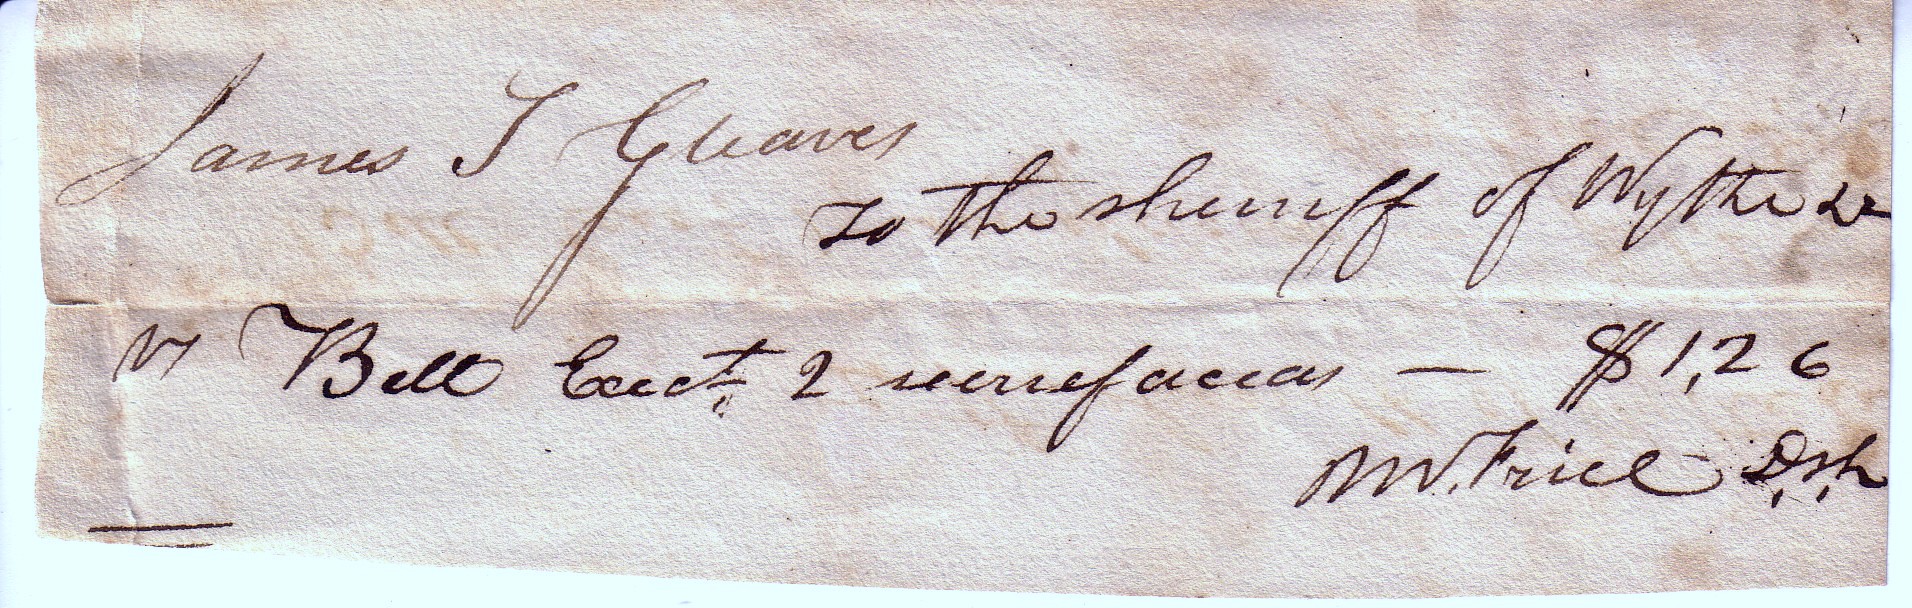 James T Gleaves
To the sheriff of Wythe Dr
vs Bell Exect. 2 venrefacias — $1,26
M W. Frice D,sh,